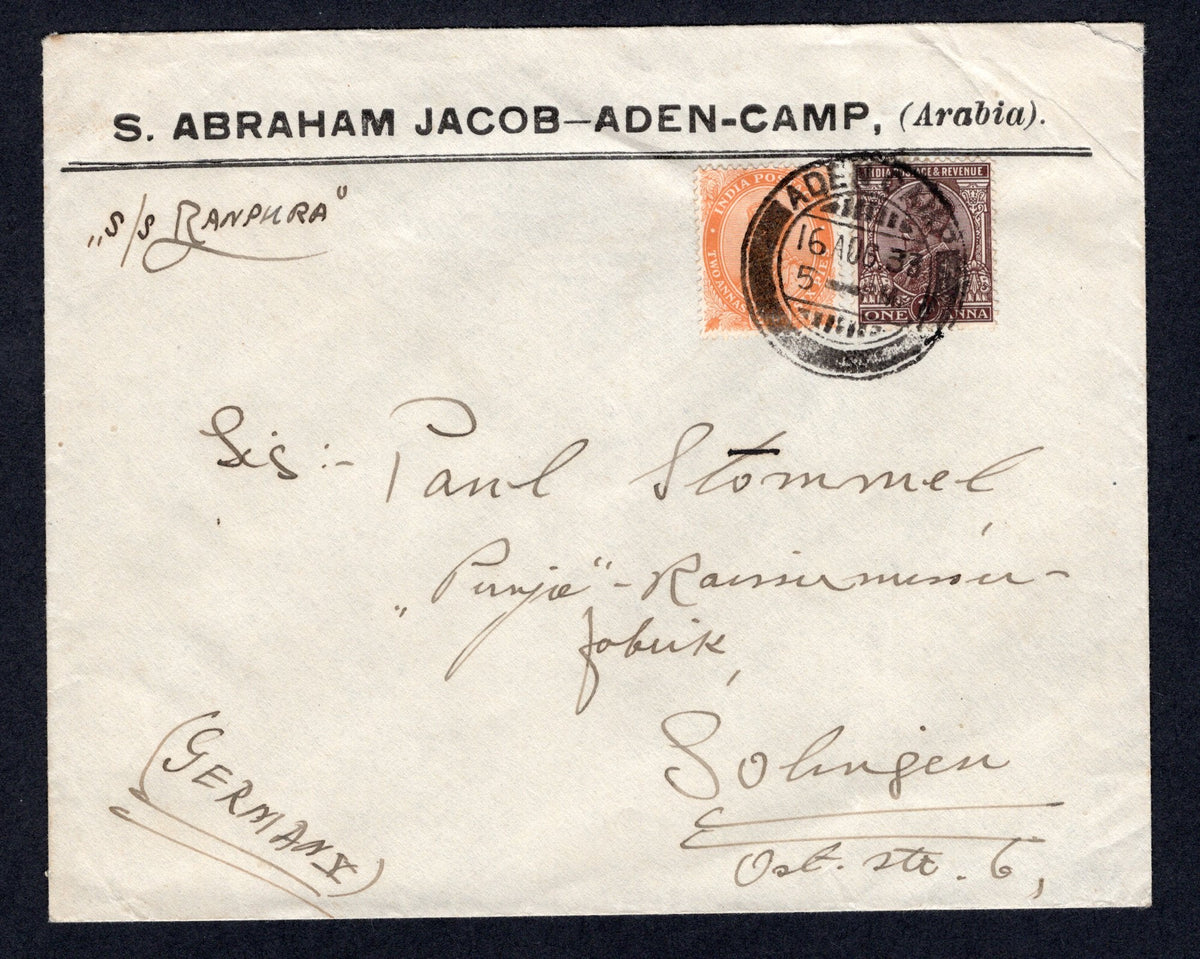 S. ABRAHAM JACOB—ADEN-CAMP, (Arabia).
„S/S RANPURA"
INDIA POS
TWO ANNAS
PIES
INDIA POSTAGE & REVENUE
ONE ANNA
ADEN CAMP
16 AUG. 33
5
Paul Stommel
„Punja"-Rasiermesser-
fabrik,
Solingen
Ost. str. 6,
(GERMANY)